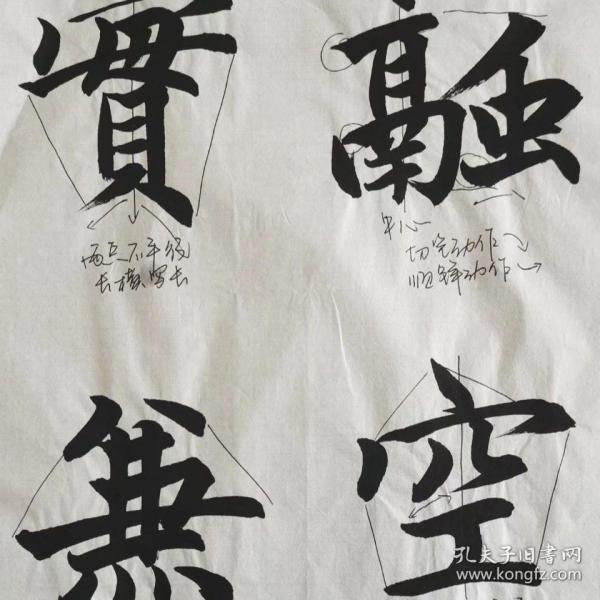 實 融
两点不平行
长横写长
中心
切笔动作
顺锋动作
兼 空
孔夫子旧书网
www.kongfz.com